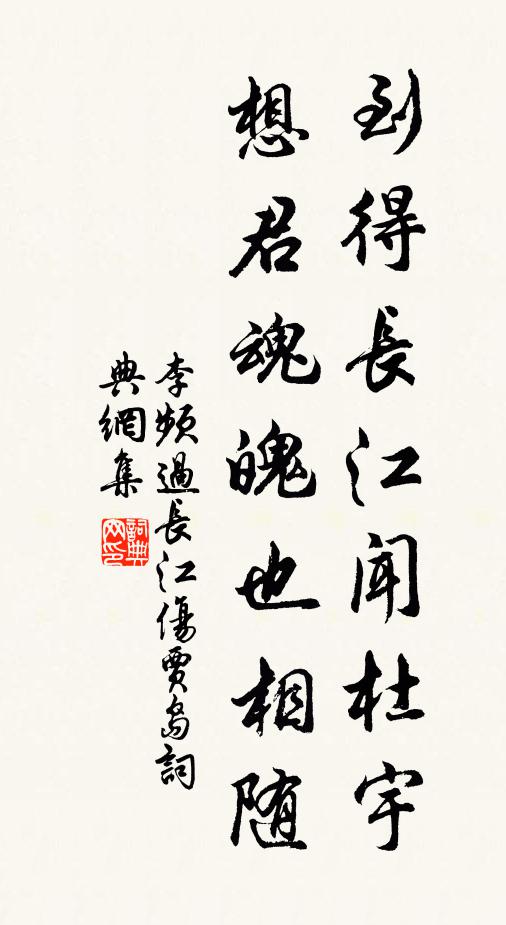 到得長江聞杜宇
想君魂魄也相随
李頻過長江傷賈島詞
典網集
詞典
网印